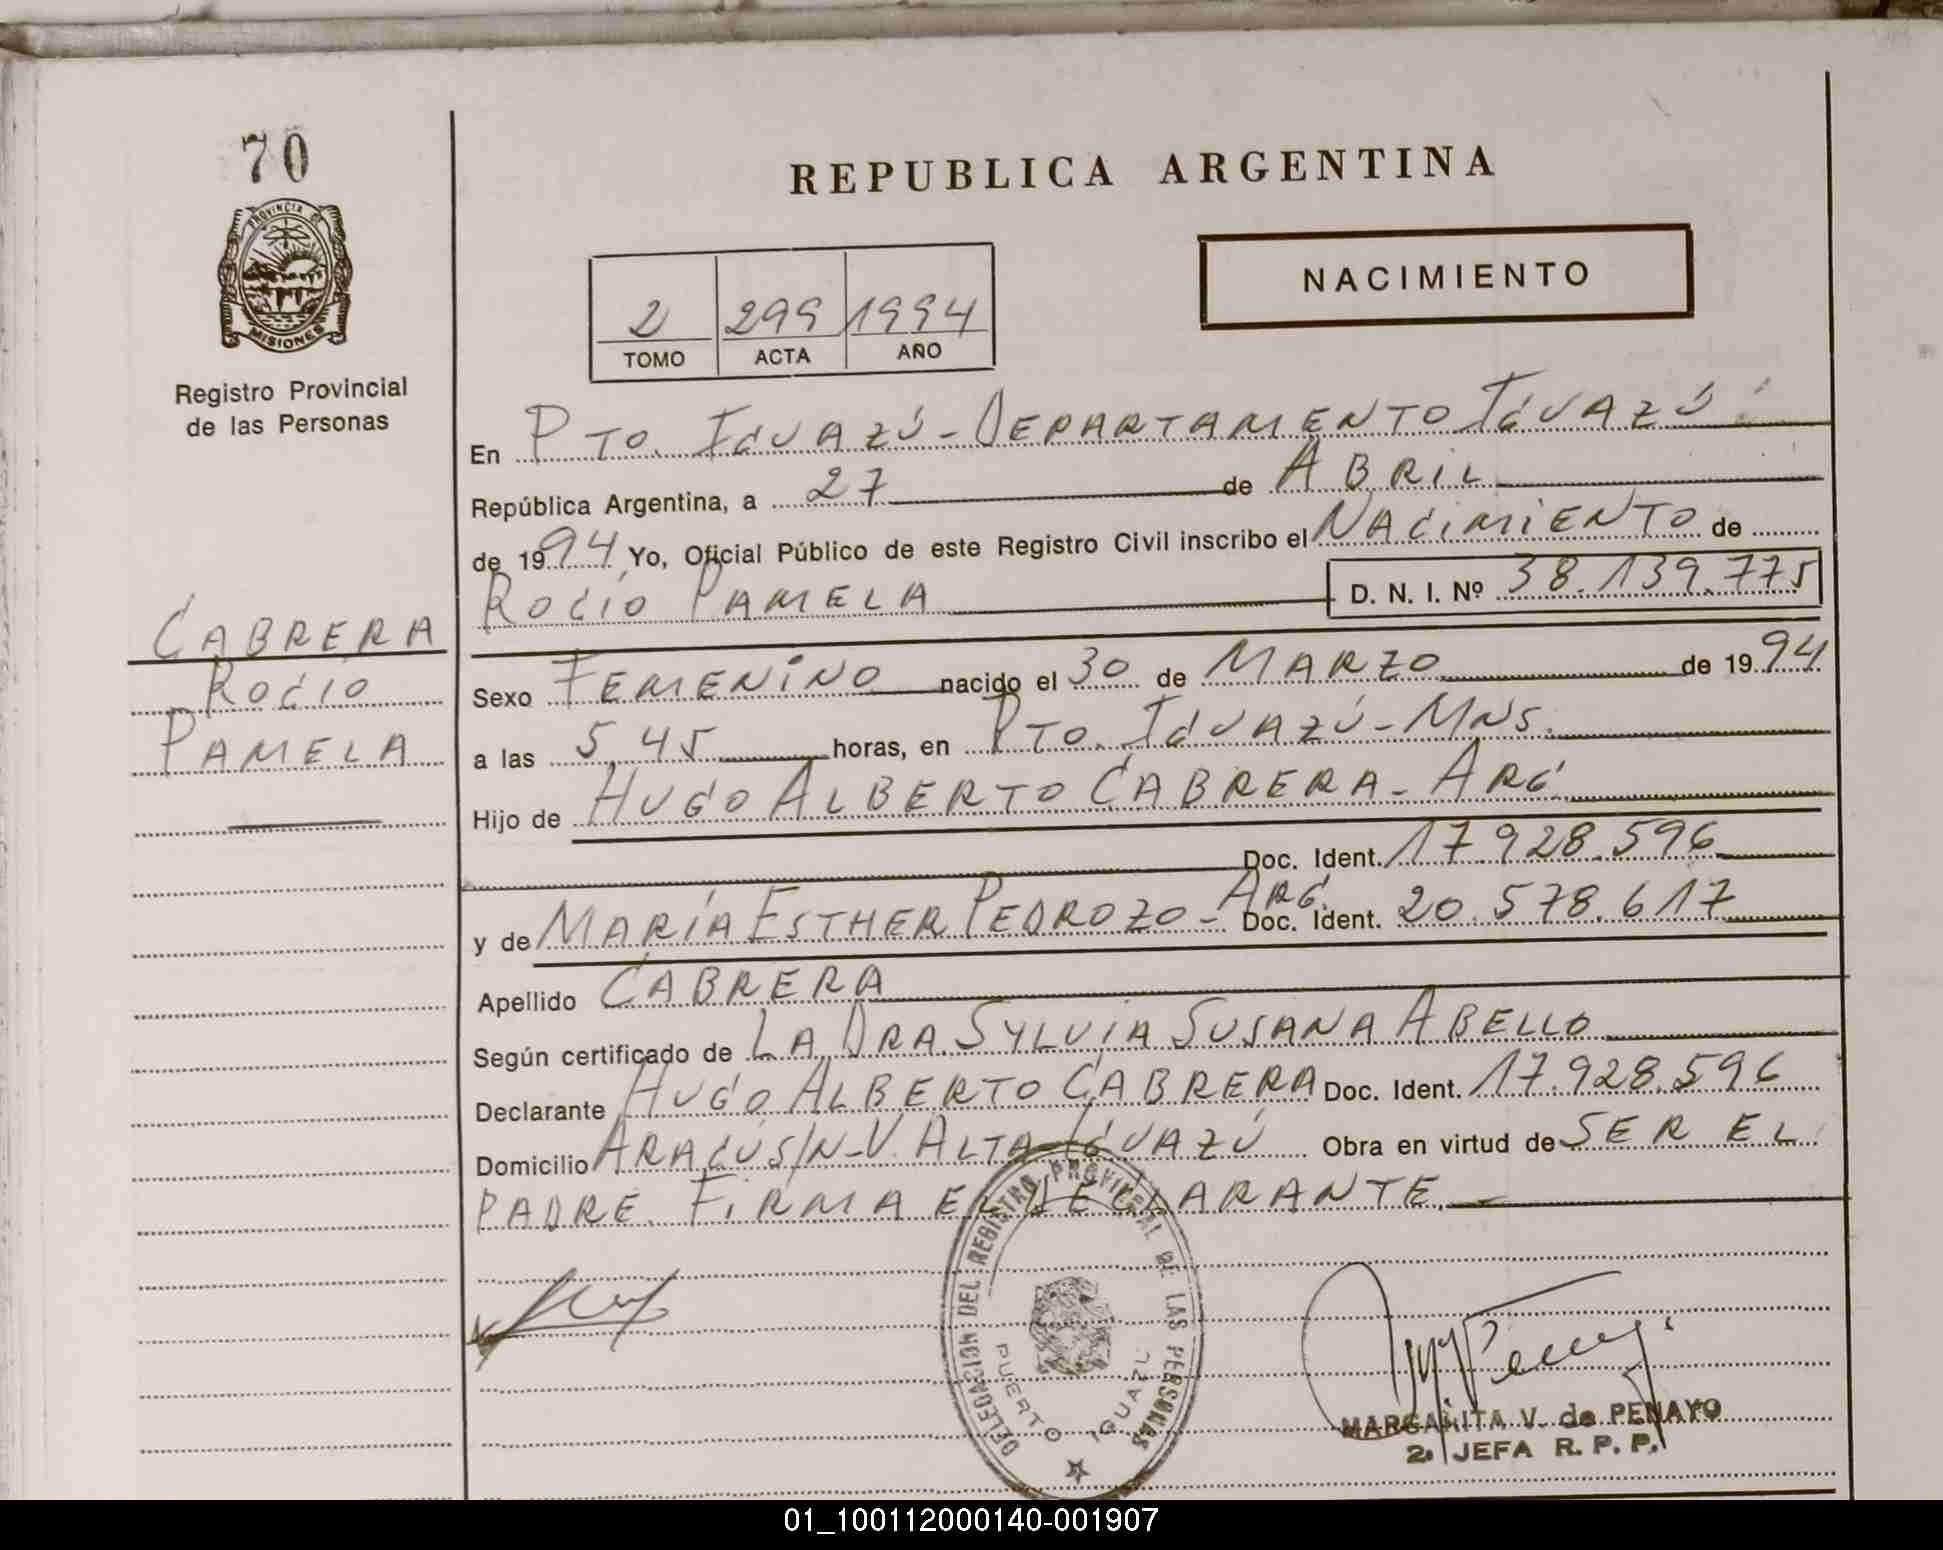 70
PROVINCIA DE
MISIONES
Registro Provincial
de las Personas
CABRERA
ROCIO
PAMELA
REPUBLICA ARGENTINA
NACIMIENTO
2 299 1994
TOMO ACTA AÑO
En PTO. IGUAZÚ - DEPARTAMENTO IGUAZÚ
República Argentina, a 27 de ABRIL
de 1994 Yo, Oficial Público de este Registro Civil inscribo el NACIMIENTO de
ROCIO PAMELA D. N. I. Nº 38.139.775
Sexo FEMENINO nacido el 30 de MARZO de 1994
a las 5,45 horas, en PTO. IGUAZÚ - MNS.
Hijo de HUGO ALBERTO CABRERA - ARG.
Doc. Ident. 17.928.596
y de MARÍA ESTHER PEDROZO - ARG. Doc. Ident. 20.578.617
Apellido CABRERA
Según certificado de LA DRA. SYLVIA SUSANA ABELLO
Declarante HUGO ALBERTO CABRERA Doc. Ident. 17.928.596
Domicilio ARAGÚ S/N - V. ALTA - IGUAZÚ Obra en virtud de SER EL
PADRE. FIRMA EL DECLARANTE. -
DELEGACION DEL REGISTRO PROVINCIAL DE LAS PERSONAS
PUERTO IGUAZU
MARGARITA V. de PENAYO
2. JEFA R. P. P.
01_100112000140-001907